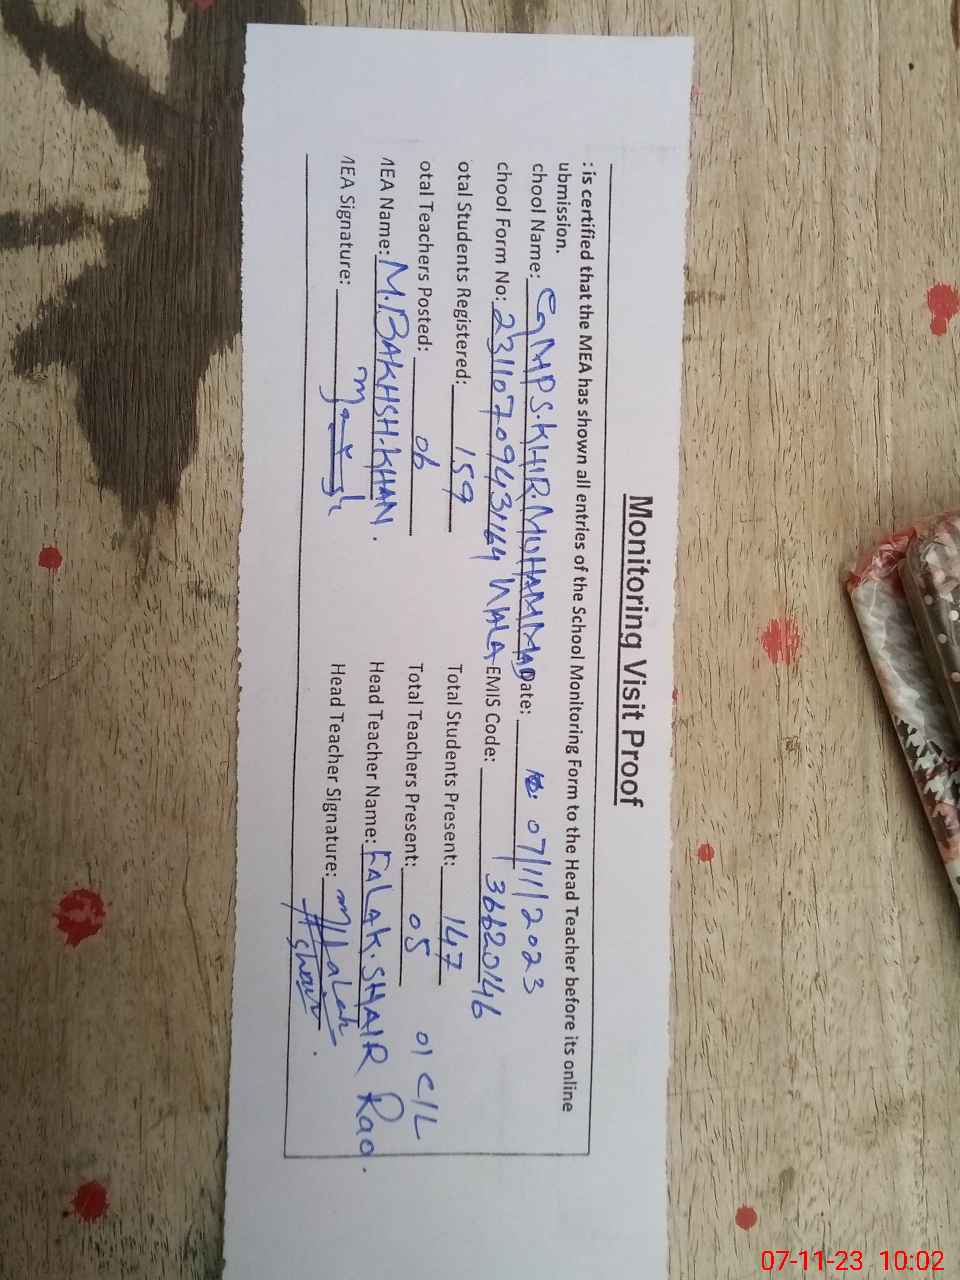 Monitoring Visit Proof
: is certified that the MEA has shown all entries of the School Monitoring Form to the Head Teacher before its online
ubmission.
chool Name: GMPS.KHIR.MUHAMMAD Date: 07/11/2023
chool Form No: 2311070943164 WALA EMIS Code: 36620146
otal Students Registered: 159 Total Students Present: 147
otal Teachers Posted: 06 Total Teachers Present: 05 01 C/L
MEA Name: M.BAKHSH.KHAN. Head Teacher Name: FALAK.SHAIR Rao.
MEA Signature: Head Teacher Signature: M Falak
Shair
07-11-23 10:02